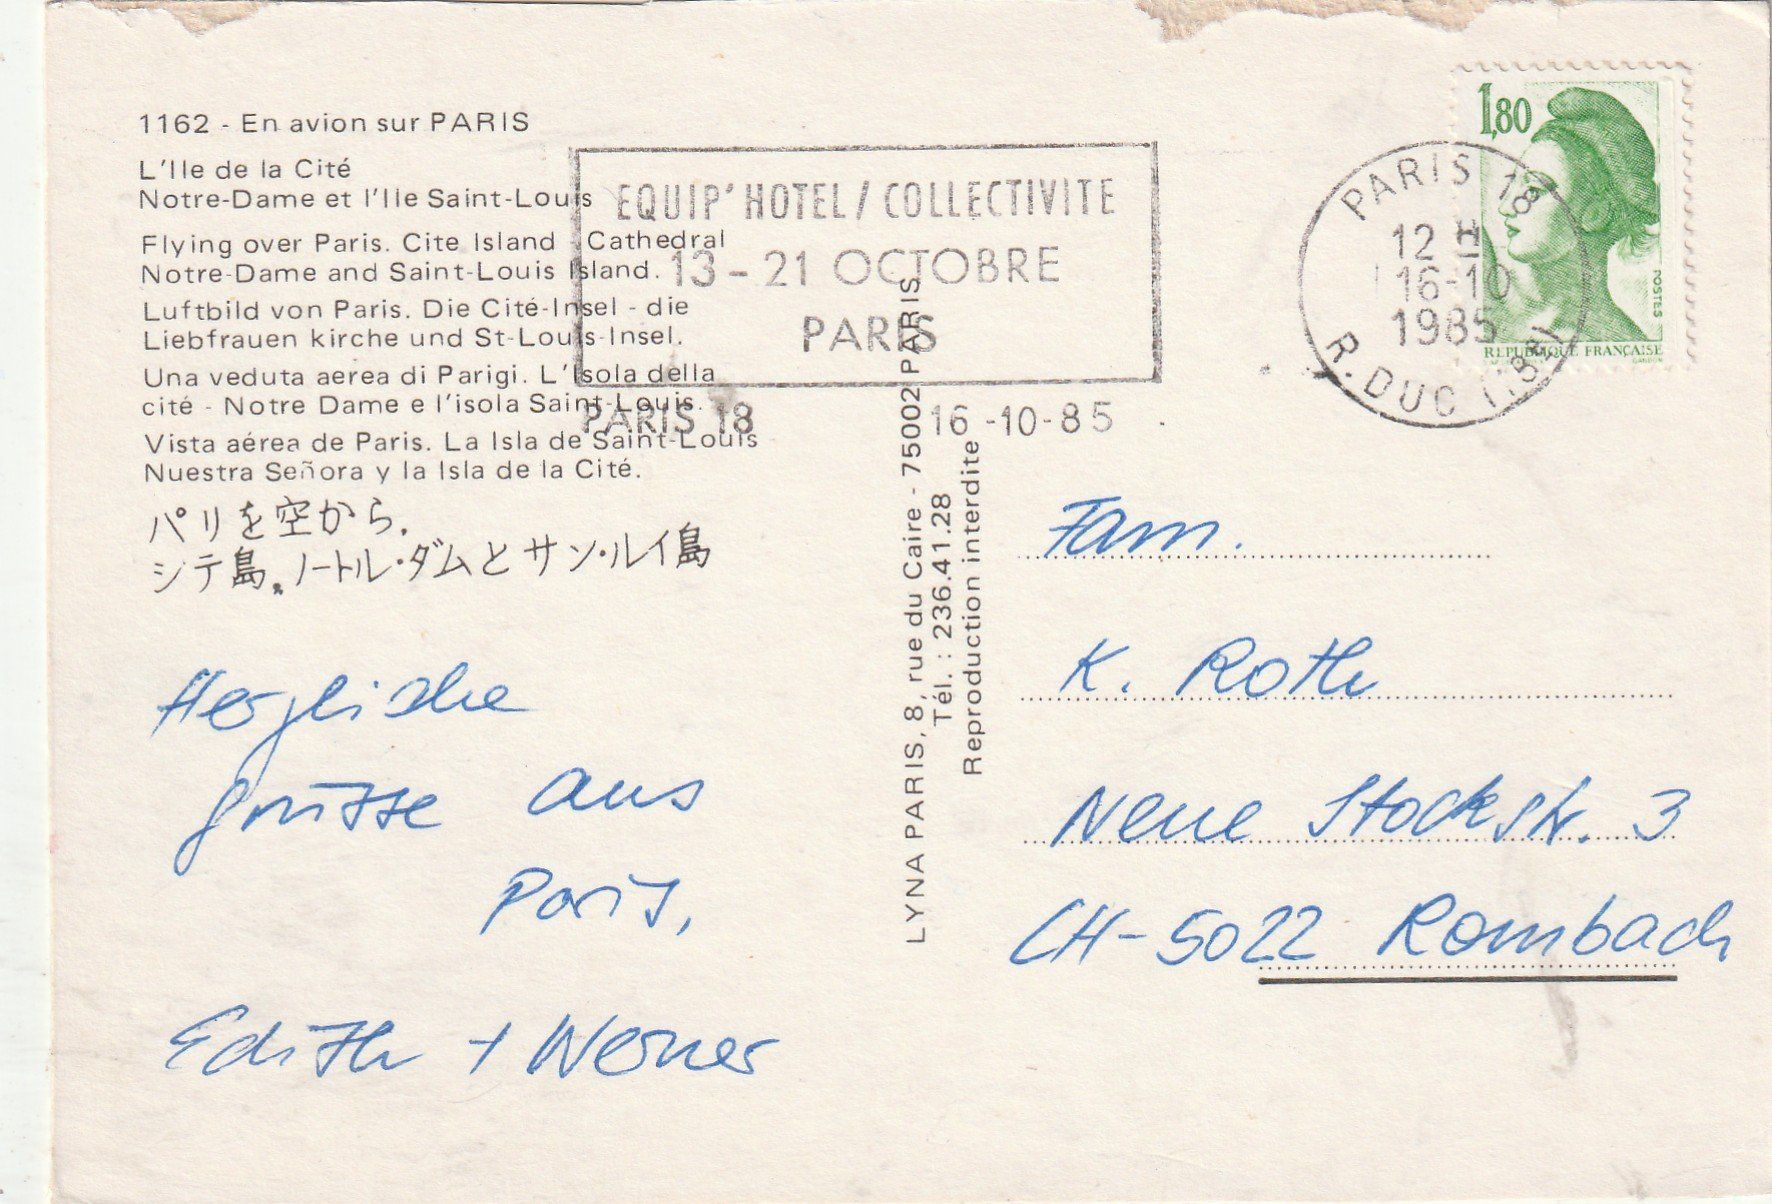 1162 - En avion sur PARIS
L'Ile de la Cité
Notre-Dame et l'Ile Saint-Louis
Flying over Paris. Cite Island - Cathedral
Notre-Dame and Saint-Louis Island.
Luftbild von Paris. Die Cité-Insel - die
Liebfrauen kirche und St-Louis-Insel.
Una veduta aerea di Parigi. L'Isola della
cité - Notre Dame e l'isola Saint-Louis.
Vista aérea de Paris. La Isla de Saint-Louis
Nuestra Señora y la Isla de la Cité.
パリを空から.
シテ島。ノートル・ダムとサン・ルイ島
EQUIP'HOTEL / COLLECTIVITE
13 - 21 OCTOBRE
PARIS
PARIS 18 16 -10-85
1,80
POSTES
REPUBLIQUE FRANÇAISE
GANDON
PARIS 18
12 H
16-10
1985
R. DUC (18E)
LYNA PARIS, 8, rue du Caire - 75002 PARIS
Tél. : 236.41.28
Reproduction interdite
Herzliche
Grüsse aus
Paris,
Edith + Werner
Fam.
K. Roth
Neue Stockstr. 3
CH-5022 Rombach